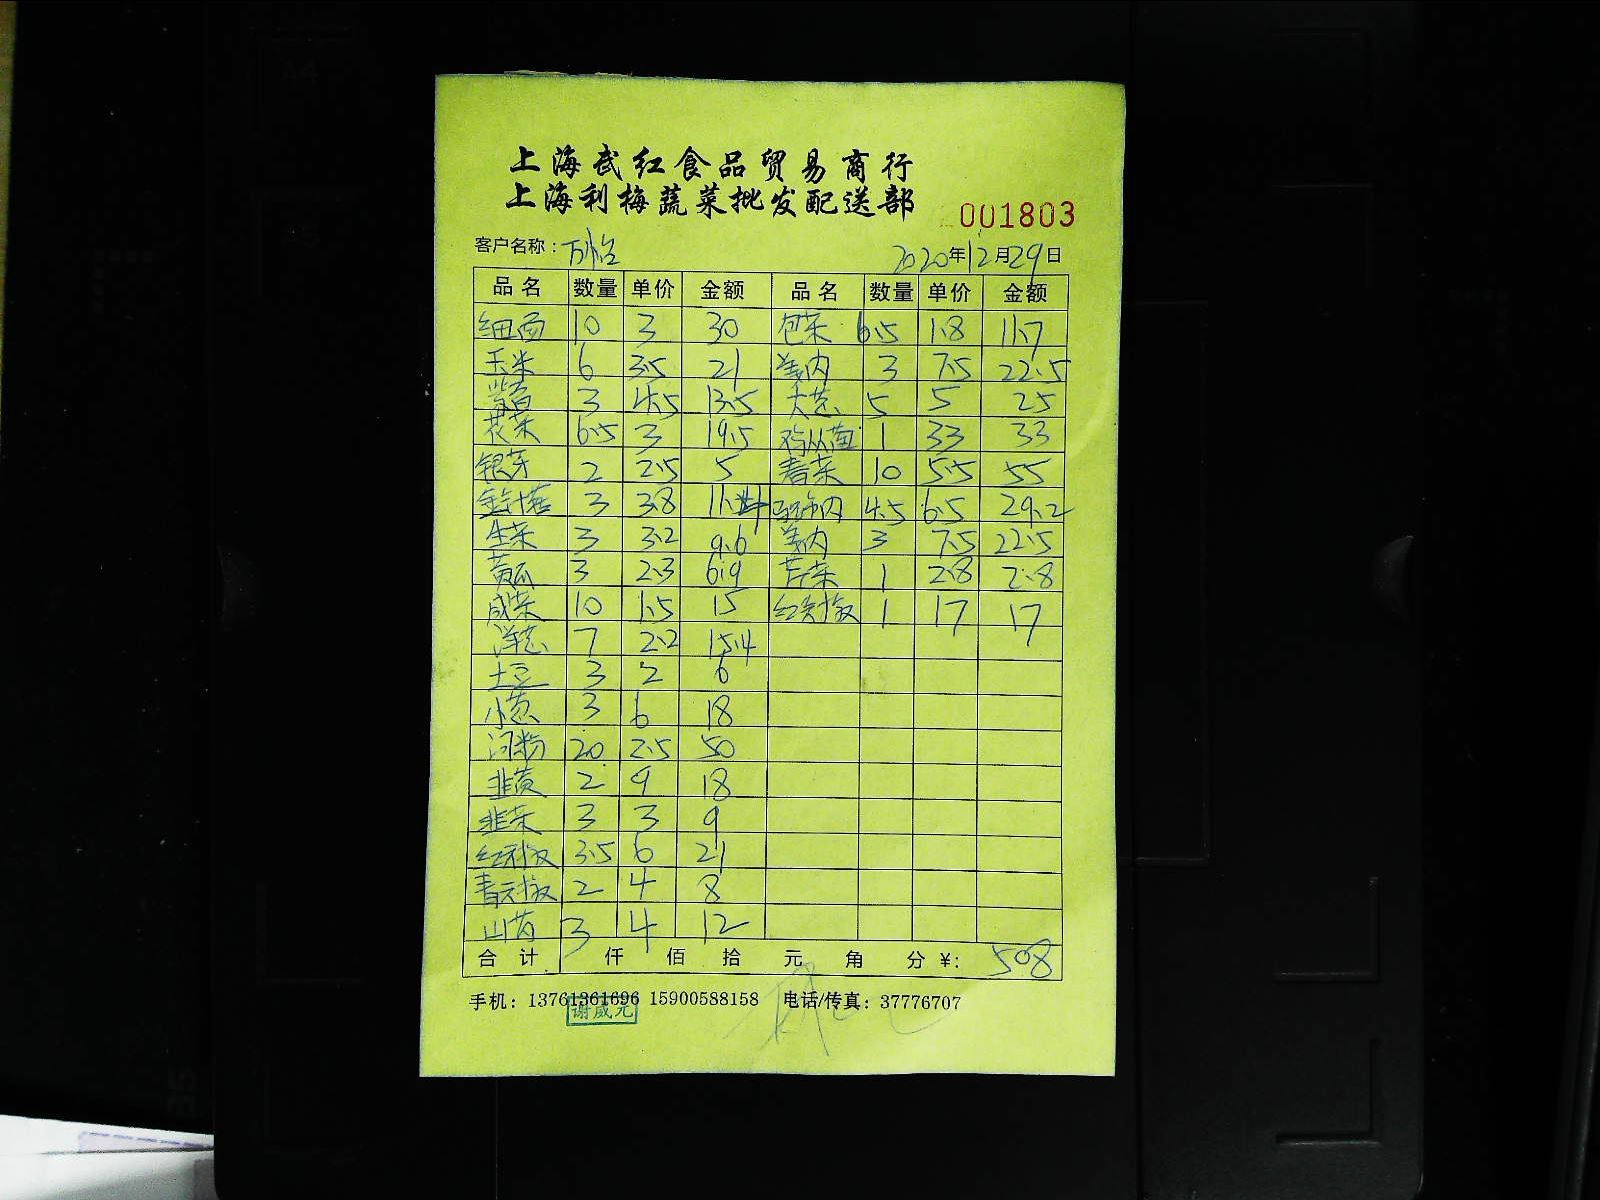 上海武红食品贸易商行
上海利梅蔬菜批发配送部
001803
客户名称：万怡 2020年12月29日
品名 数量 单价 金额 品名 数量 单价 金额
细面 10 3 30 包菜 6.5 1.8 11.7
玉米 6 3.5 21 姜肉 3 7.5 22.5
3 4.5 13.5 大葱 5 5 25
花菜 6.5 3 19.5 鸡从菌 1 33 33
银芽 2 2.5 5 春菜 10 5.5 55
金针菇 3 3.8 4.5 6.5 29.2
生菜 3 3.2 9.6 姜肉 3 7.5 22.5
黄瓜 3 2.3 6.9 芹菜 1 2.8 2.8
咸菜 10 1.5 15 红尖椒 1 17 17
洋葱 7 2.2 15.4
土豆 3 2 6
小葱 3 6 18
河粉 20 2.5 50
韭黄 2 9 18
韭菜 3 3 9
红元椒 3.5 6 21
青元椒 2 4 8
山芍 3 4 12
合计 仟 佰 拾 元 角 分 ¥: 508
手机：13761361696 15900588158 电话/传真：37776707
谢威元